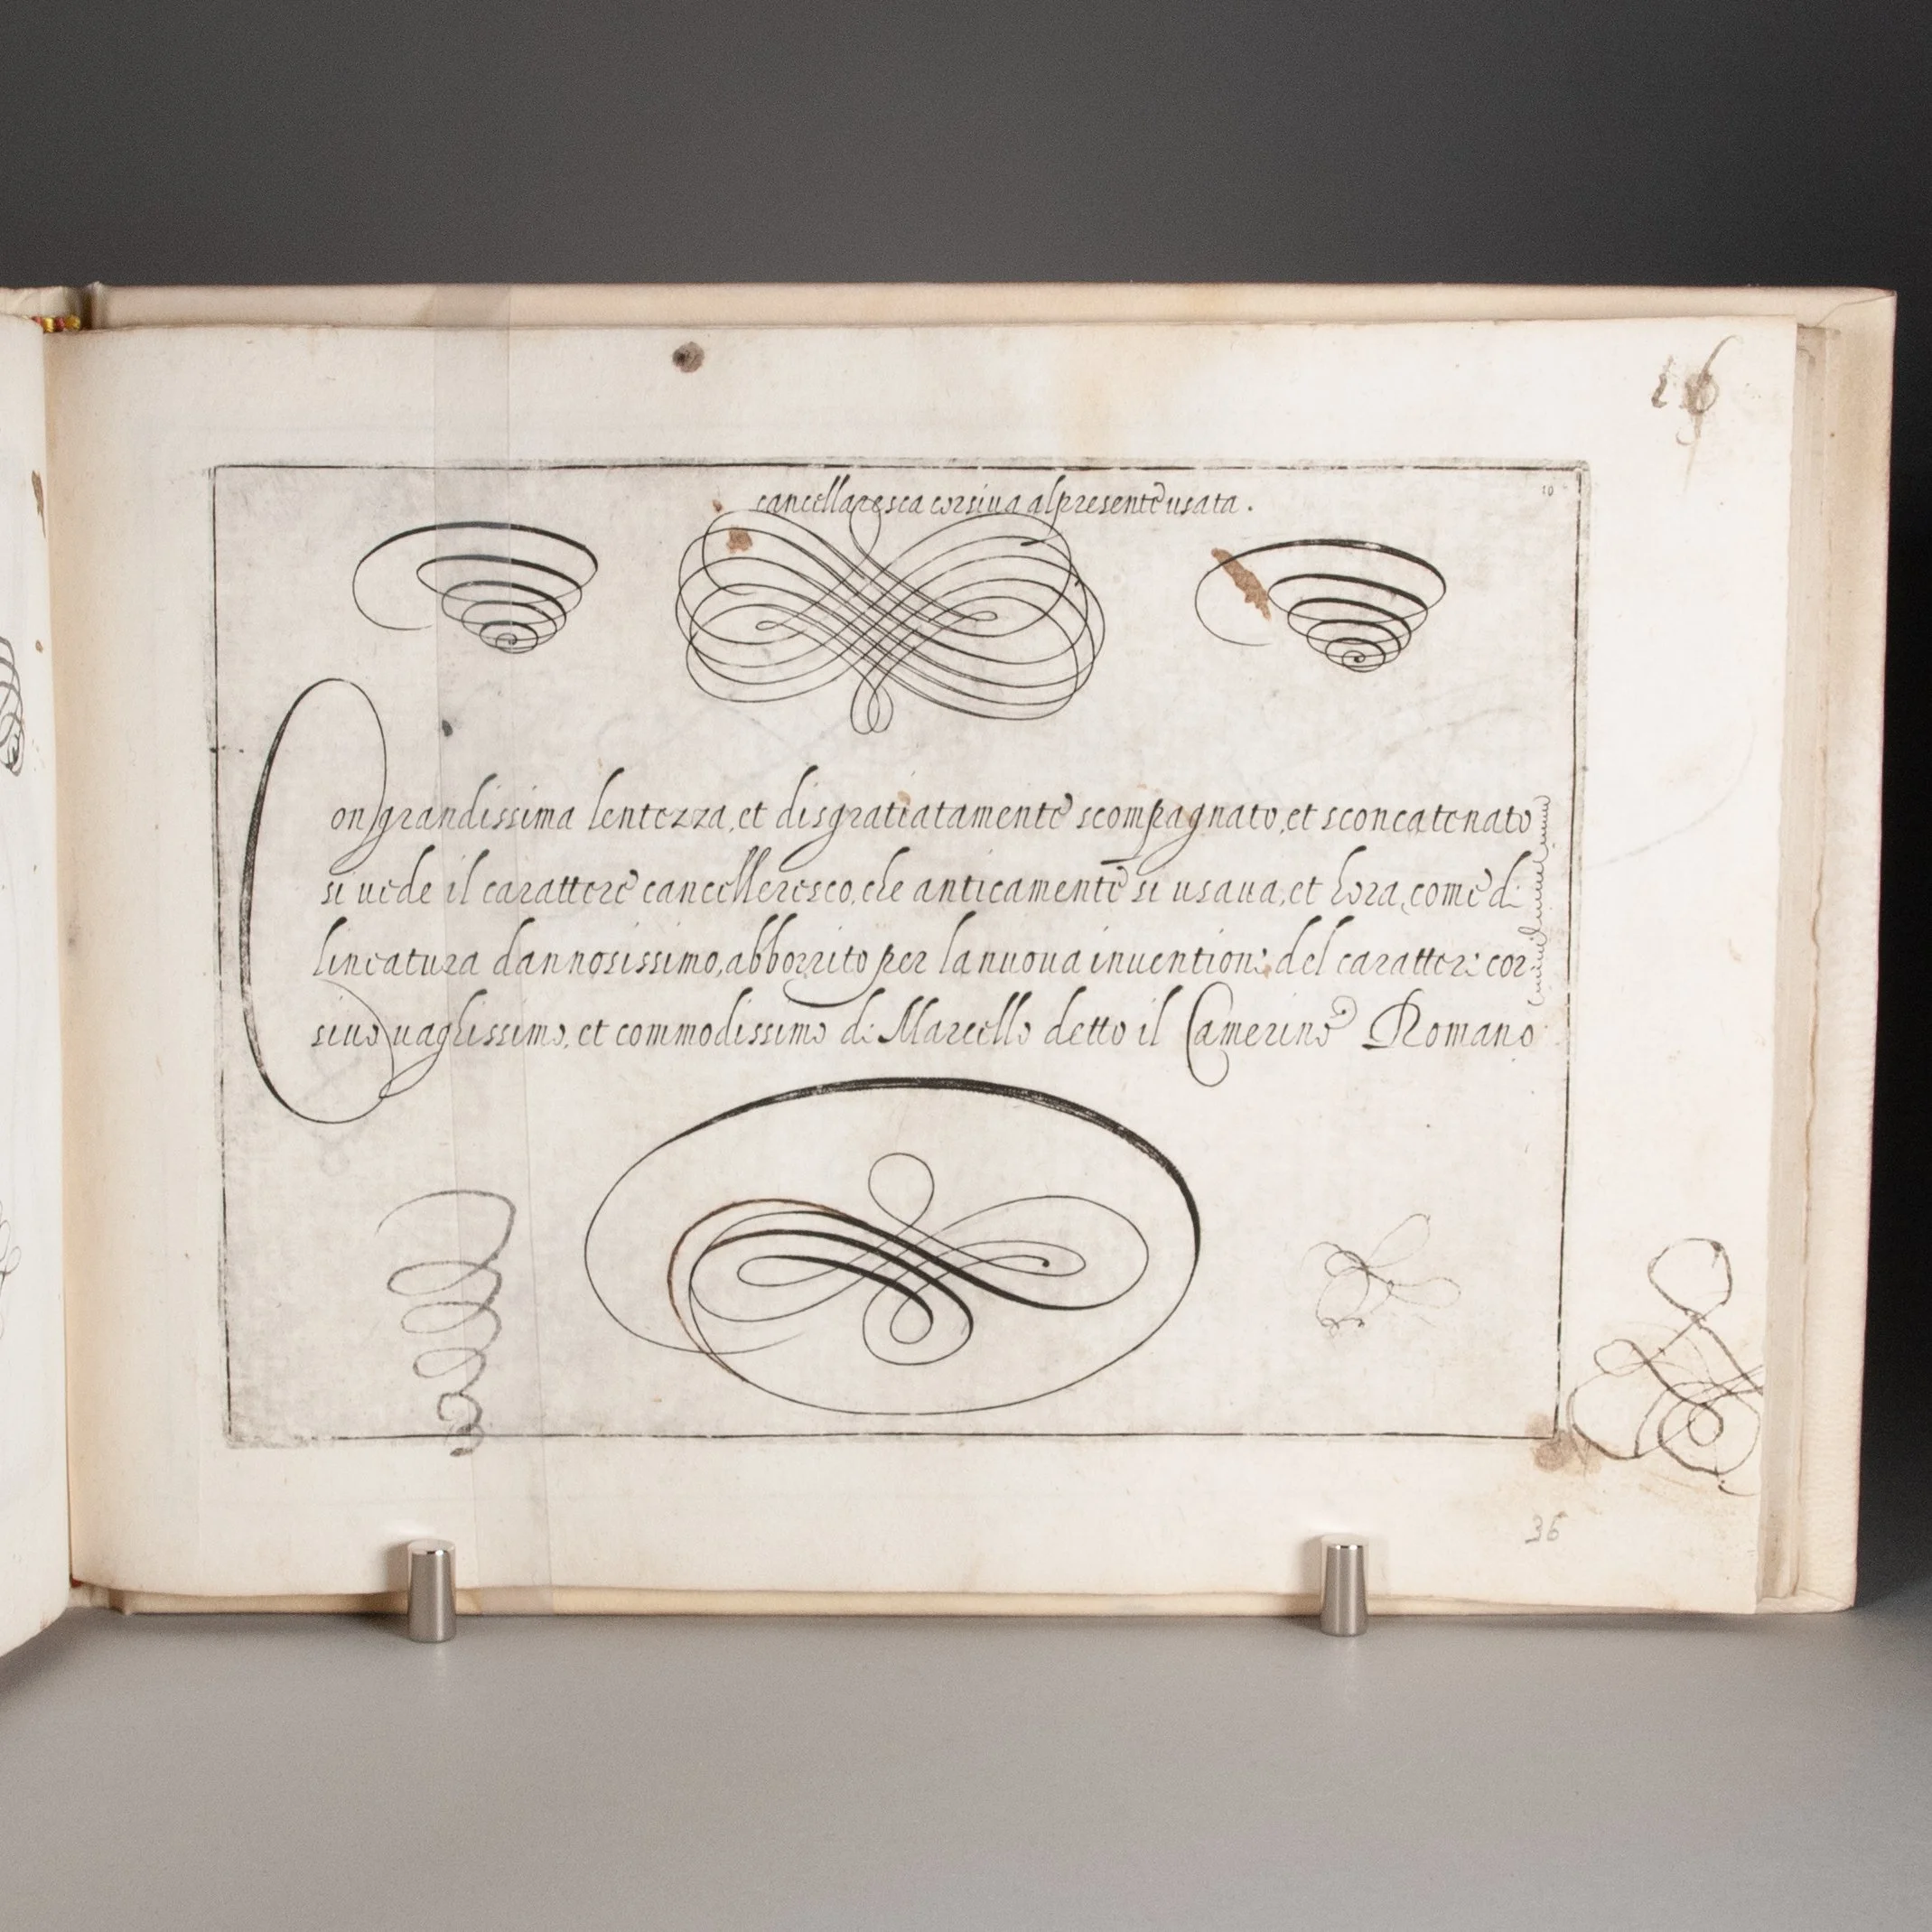 16
10
cancellaresca corsiua al presente usata.
Con grandissima lentezza, et disgratiatamente scompagnato, et sconcatenato
si uede il carattere cancelleresco, che anticamente si usaua, et hora, come di
lineatura dannosissimo, abborrito per la nuoua inuentione del carattere cor
siuo uaghissimo, et commodissimo di Marcello detto il Camerino Romano
36